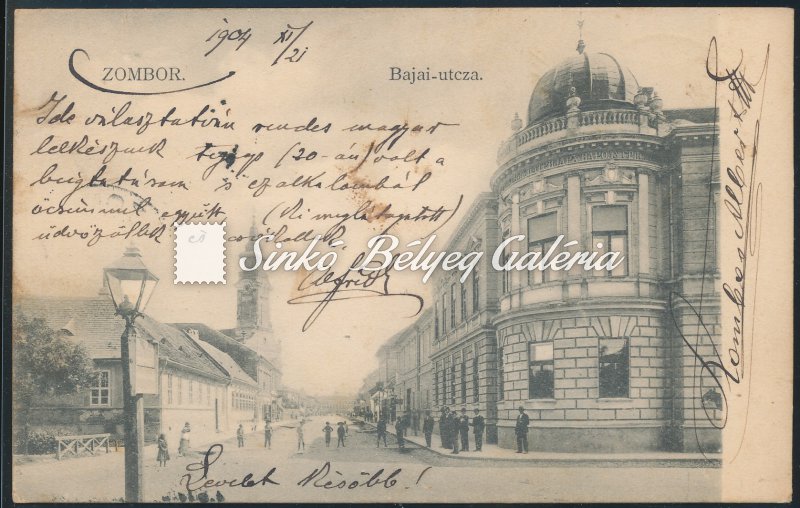 1904 XI/21
ZOMBOR.
Bajai-utcza.
Ide választatván rendes magyar
lelkésznek tegnap (20-án) volt a
beigtatásom s ez alkalomból
öcsémmel együtt (ki meglátogatott)
üdvözöllek
Alfréd
Sinkó Bélyeg Galéria
Levelet később!
Albert